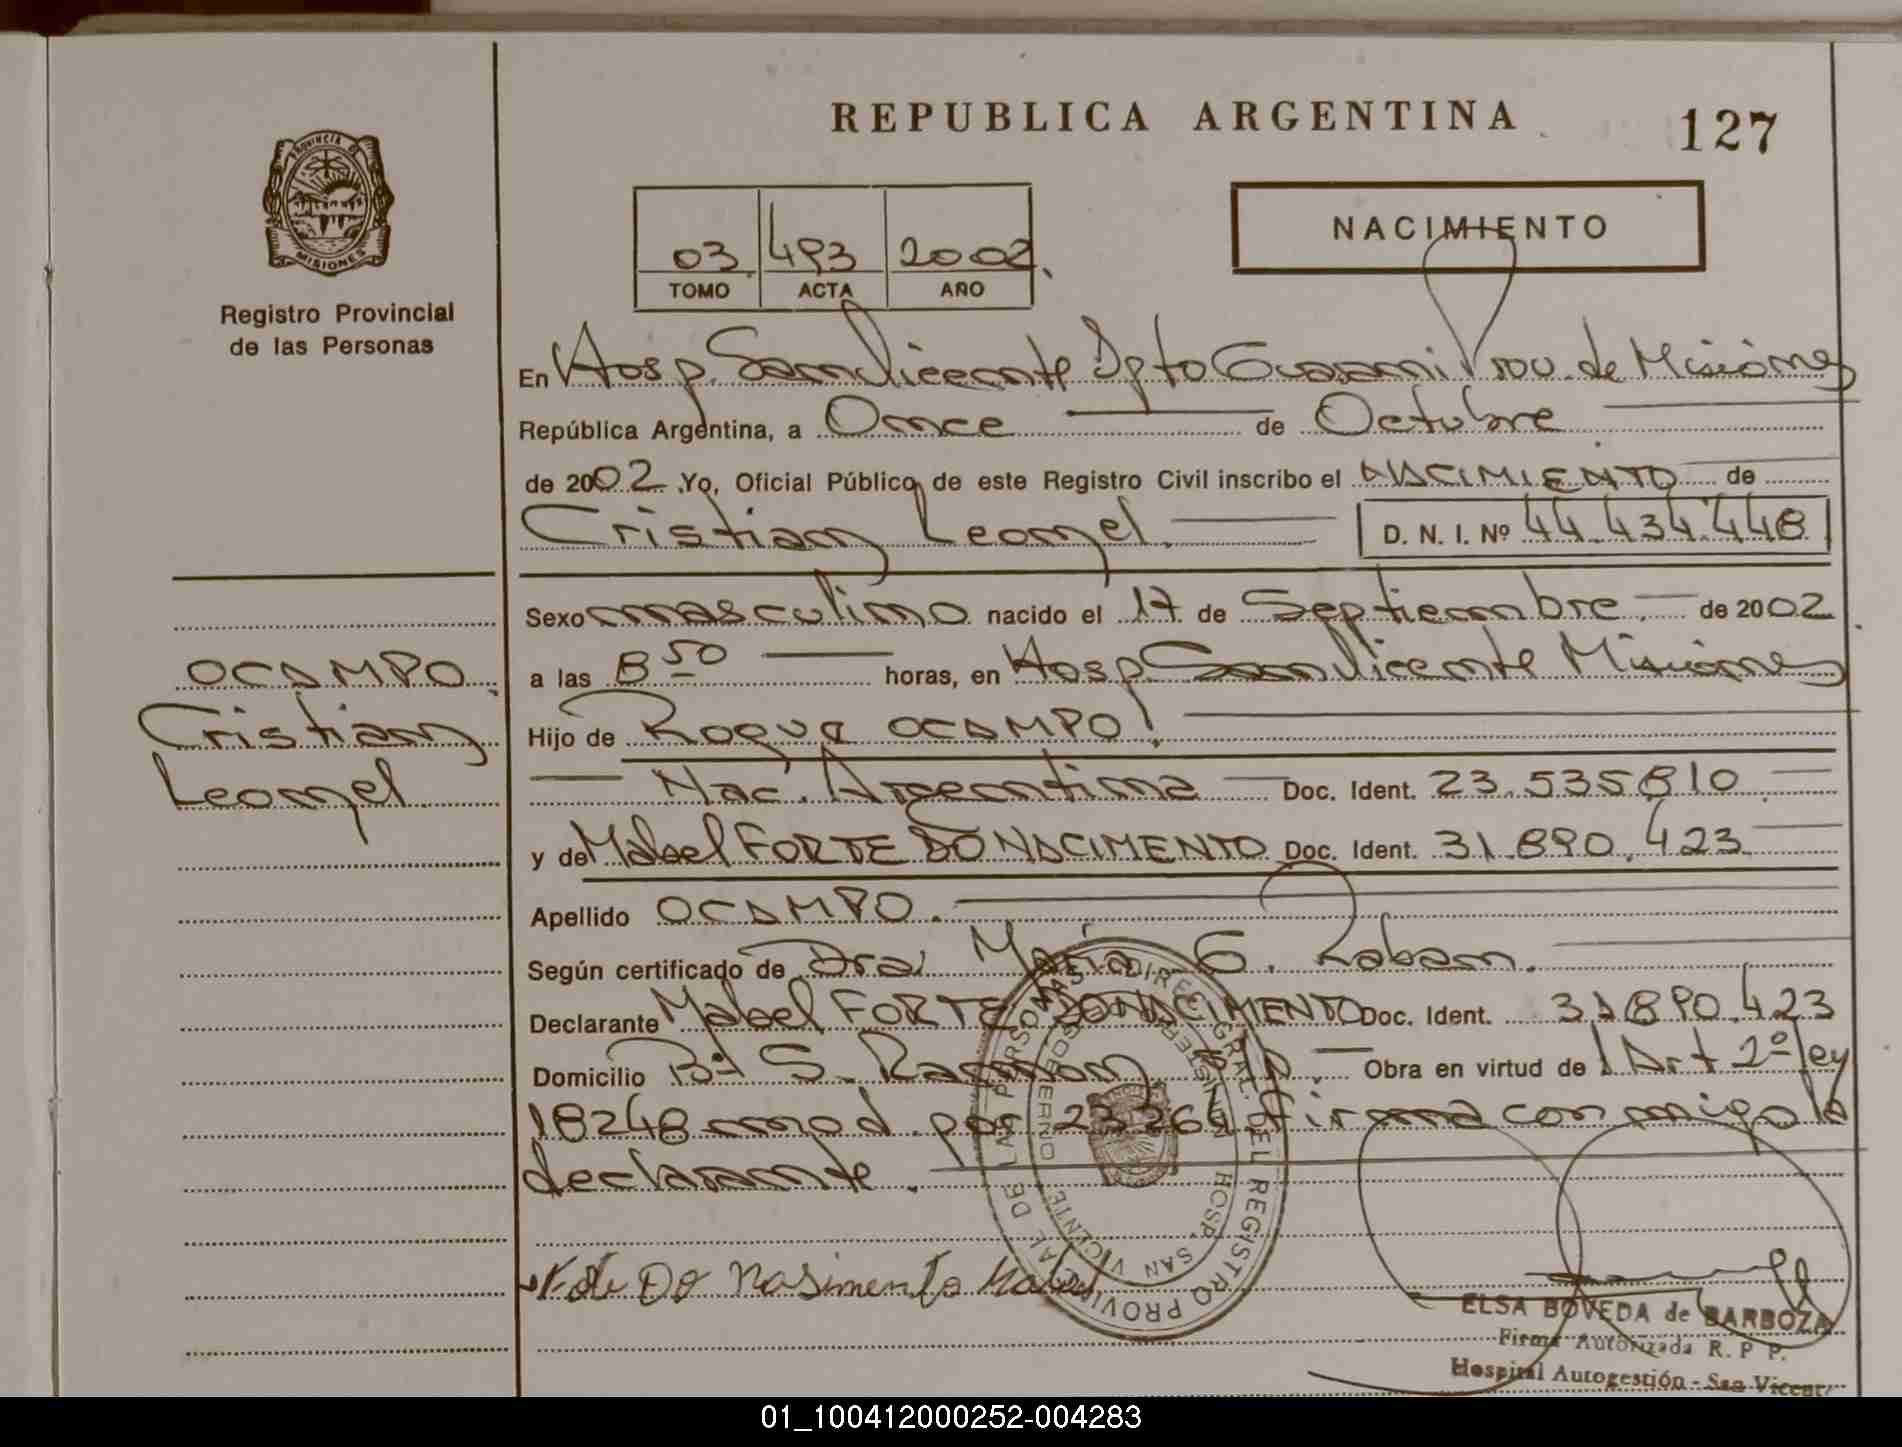 REPUBLICA ARGENTINA
127
PROVINCIA DE
MISIONES
Registro Provincial
de las Personas
03 493 2002
TOMO ACTA AÑO
NACIMIENTO
En Hosp. San Vicente Dpto Guarani Prov. de Misiones
República Argentina, a Once de Octubre
de 2002 Yo, Oficial Público de este Registro Civil inscribo el NACIMIENTO de
Cristian Leonel. D. N. I. Nº 44.434.448
Sexo masculino nacido el 17 de Septiembre de 2002
OCAMPO
a las 8 50 horas, en Hosp San Vicente Misiones
Cristian
Hijo de Roque OCAMPO
Leonel
Nac. Argentina Doc. Ident. 23.535810
y de Mabel FORTE DO NACIMENTO Doc. Ident. 31.890.423
Apellido OCAMPO.
Según certificado de Dra. Maria G. Raban.
Declarante Mabel FORTE DO NACIMENTO Doc. Ident. 31890.423
Domicilio Bº S. Ramon. S/n. Obra en virtud de l Art 2º ley
18248 mod. por 23264 firma con migo la
declarante.
DIREC. GRAL. DEL REGISTRO PROVINCIAL DE LAS PERSONAS
HOSP. SAN VICENTE
Do Nasimento Mabel
ELSA BOVEDA de BARBOZA
Firma Autorizada R. P P.
Hospital Autogestión - San Vicente
01_100412000252-004283